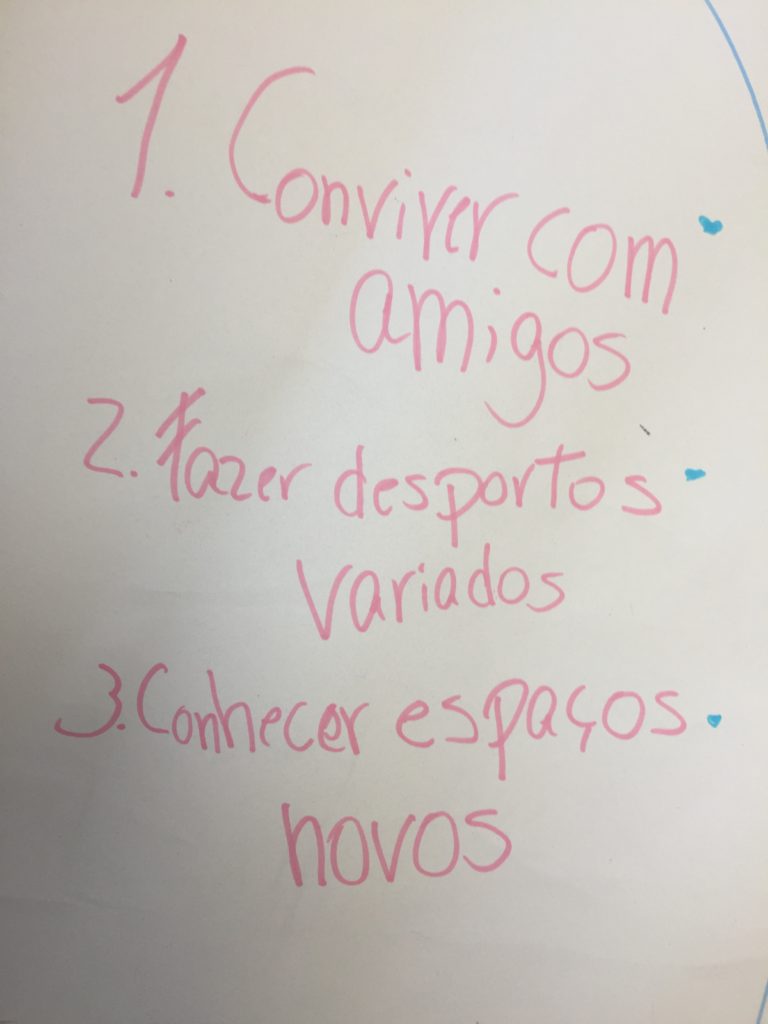 1. Conviver com
amigos
2. Fazer desportos
variados
3. Conhecer espaços
novos